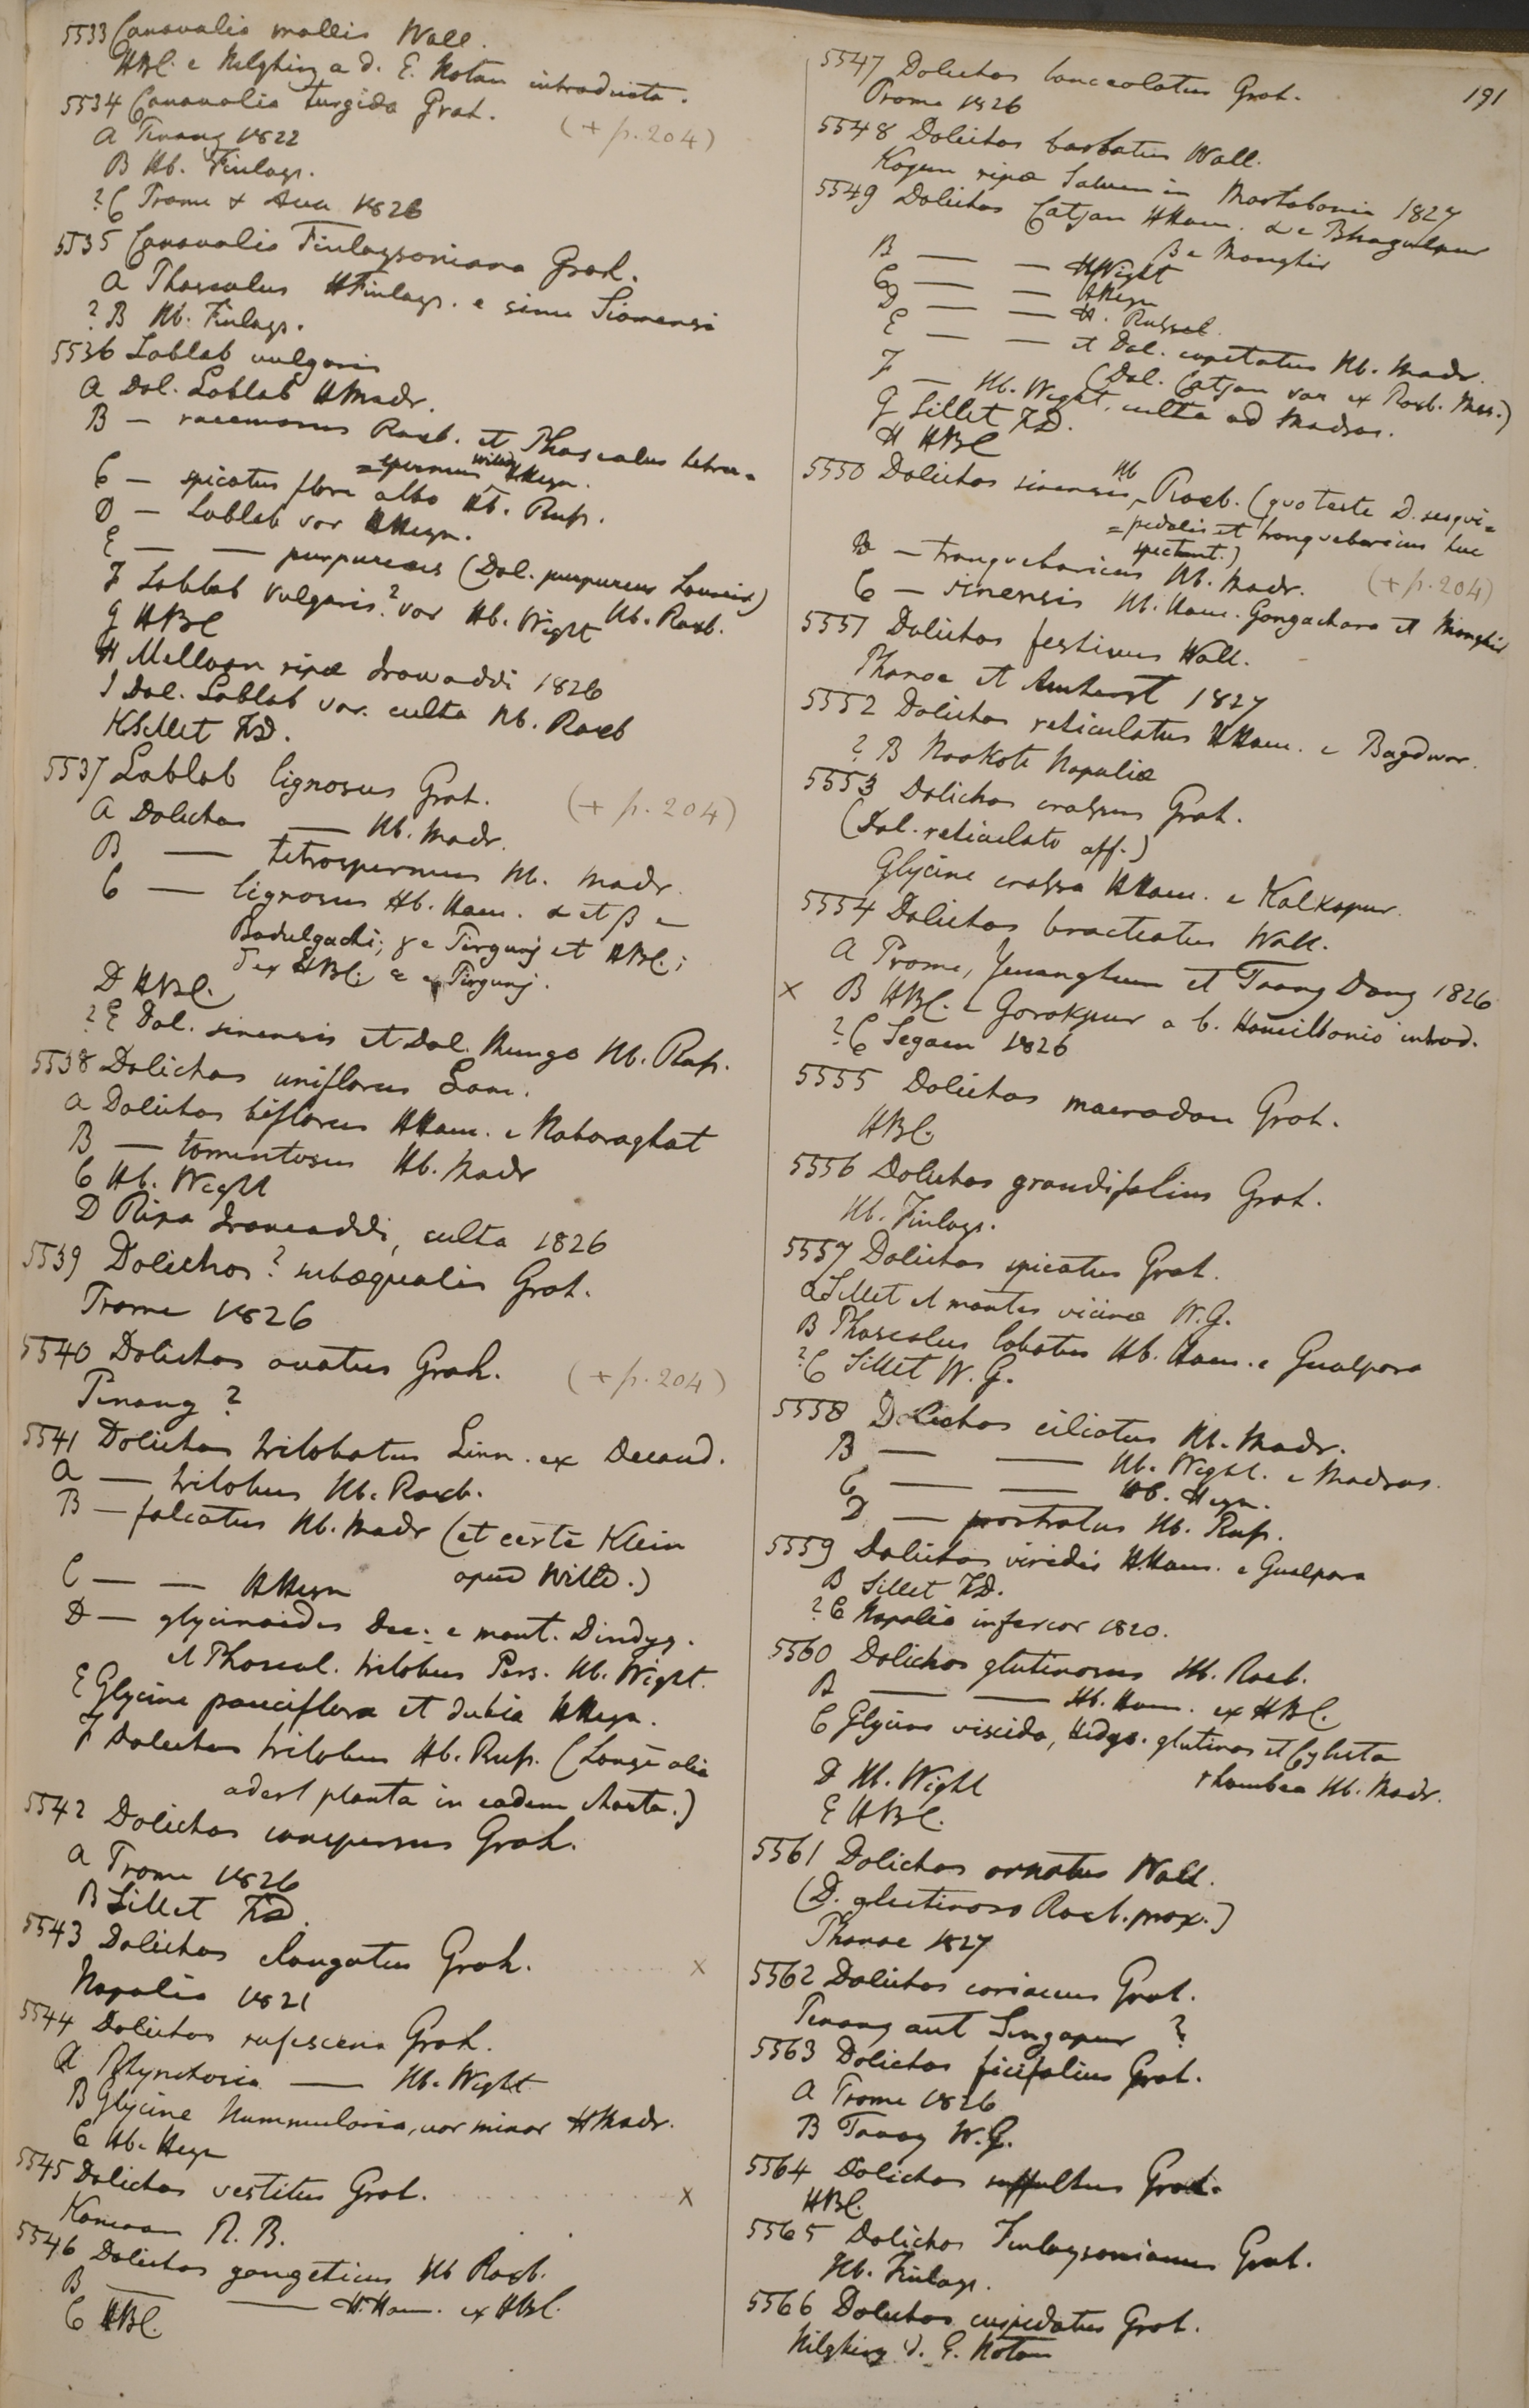 5533 Canavalia mollis Wall.
HBC. e Nilghiry a d. E. Noton introducta.
5534 Canavalia turgida Grah.
(+ p. 204)
A Penang 1822
B Hb. Finlays.
?C Prome & Ava 1826
5535 Canavalia Finlaysoniana Grah.
A Phaseolus HFinlays. e sinu Siamensi
?B Hb. Finlays.
5536 Lablab vulgaris
A Dol. Lablab HMadr.
B — racemosus Roxb. et Phaseolus tetra=
=spermus Willd HHeyn.
C — spicatus flore albo Hb. Russ.
D — Lablab var HHeyn.
E — — purpureus (Dol. purpureus Loureir)
Hb. Roxb.
F Lablab vulgaris? var Hb. Wight
G HBC
H Melloon ripæ Irawaddi 1826
I Dol. Lablab var. culta Hb. Roxb
K Sillet FD.
5537 Lablab lignosus Grah.
(+ p. 204)
A Dolichos — Hb. Madr.
B — tetraspermus Hb. Madr.
C — lignosus Hb. Ham. α et β e
Badulgachi; γ e Tirgunj et HBC;
δ ex HBC. ε e Tirgunj.
D HBC.
?E Dol. sinensis et Dol. Mungo Hb. Russ.
5538 Dolichos uniflorus Lam.
A Dolichos biflorus HHam. e Nataraghat
B — tomentosus Hb. Madr
C Hb. Wight
D Ripa Irawaddi, culta 1826
5539 Dolichos? subæqualis Grah.
Prome 1826
5540 Dolichos ovatus Grah.
(+ p. 204)
Penang ?
5541 Dolichos trilobatus Linn. ex Decand.
A — trilobus Hb. Roxb.
B — falcatus Hb. Madr (et certe Klein
apud Willd.)
C — — HHeyn
D — glycinoides Dec. e mont. Dindyg.
et Phaseol. trilobus Pers. Hb. Wight.
E Glycine pauciflora et dubia HHeyn.
F Dolichos trilobus Hb. Russ. (Longe alia
adest planta in eadem charta.)
5542 Dolichos conspersus Grah.
A Prome 1826
B Sillet FD.
5543 Dolichos elongatus Grah. x
Napalia 1821
5544 Dolichos rufescens Grah.
A Rhynchosia — Hb. Wight
B Glycine Nummularia, var minor HMadr.
C Hb. Heyn
5545 Dolichos vestitus Grah. x
Kamaon R. B.
5546 Dolichos gangeticus Hb Roxb.
B — — H. Ham. ex HBC.
C HBC.
191
5547 Dolichos lanceolatus Grah.
Prome 1826
5548 Dolichos barbatus Wall.
Kogun ripæ Saluen in Martabania 1827
5549 Dolichos Catjan HHam. α e Bhagulpur
β e Monghir
B — — HWight
C — — HHeyn
D — — H. Russel
E — — et Dol. capitatus Hb. Madr.
(Dol. Catjan var ex Roxb. Mss.)
F — Hb. Wight, culta ad Madras.
G Sillet FD.
H HBC
5550 Dolichos sinensis Hb. Roxb. (quo teste D. sesqui=
=pedalis et tranquebaricus huc
spectant.)
B — tranquebaricus Hb. Madr.
(+ p. 204)
C — sinensis Hb. Ham. Gongachora et Monghir
5551 Dolichos festivus Wall.
Phanoe et Amherst 1827
5552 Dolichos reticulatus HHam. e Bagdwar.
?B Noakote Napaliæ
5553 Dolichos crassus Grah.
(Dol. reticulato aff.)
Glycine crassa HHam. e Kalkapur
5554 Dolichos bracteatus Wall.
A Prome, Yenanghuen et Taong Dong 1826
x B HBC. e Gorokpur a b. Hamiltonio introd.
?C Segaen 1826
5555 Dolichos macrodon Grah.
HBC.
5556 Dolichos grandifolius Grah.
Hb. Finlays.
5557 Dolichos spicatus Grah.
A Sillet et montes vicinæ W.G.
B Phaseolus lobatus Hb. Ham. e Gualpara
?C Sillet W.G.
5558 Dolichos ciliatus Hb. Madr.
B — — Hb. Wight. e Madras.
C — — Hb. Heyn.
D — prostratus Hb. Russ.
5559 Dolichos viridis H.Ham. e Gualpara
B Sillet FD.
?C Napalia inferior 1820.
5560 Dolichos glutinosus Hb. Roxb.
B — — Hb. Ham. ex HBC.
C Glycine viscida, Hedys. glutinos et Cylista
rhombea Hb. Madr.
D Hb. Wight
E HBC.
5561 Dolichos ornatus Wall.
(D. glutinoso Roxb. prox.)
Phanoe 1827
5562 Dolichos coriaceus Grah.
Penang aut Singapur ?
5563 Dolichos ficifolius Grah.
A Prome 1826
B Tavoy W.G.
5564 Dolichos suffultus Grah.
HBC.
5565 Dolichos Finlaysonianus Grah.
Hb. Finlays.
5566 Dolichos cuspidatus Grah.
Nilghiry d. E. Noton